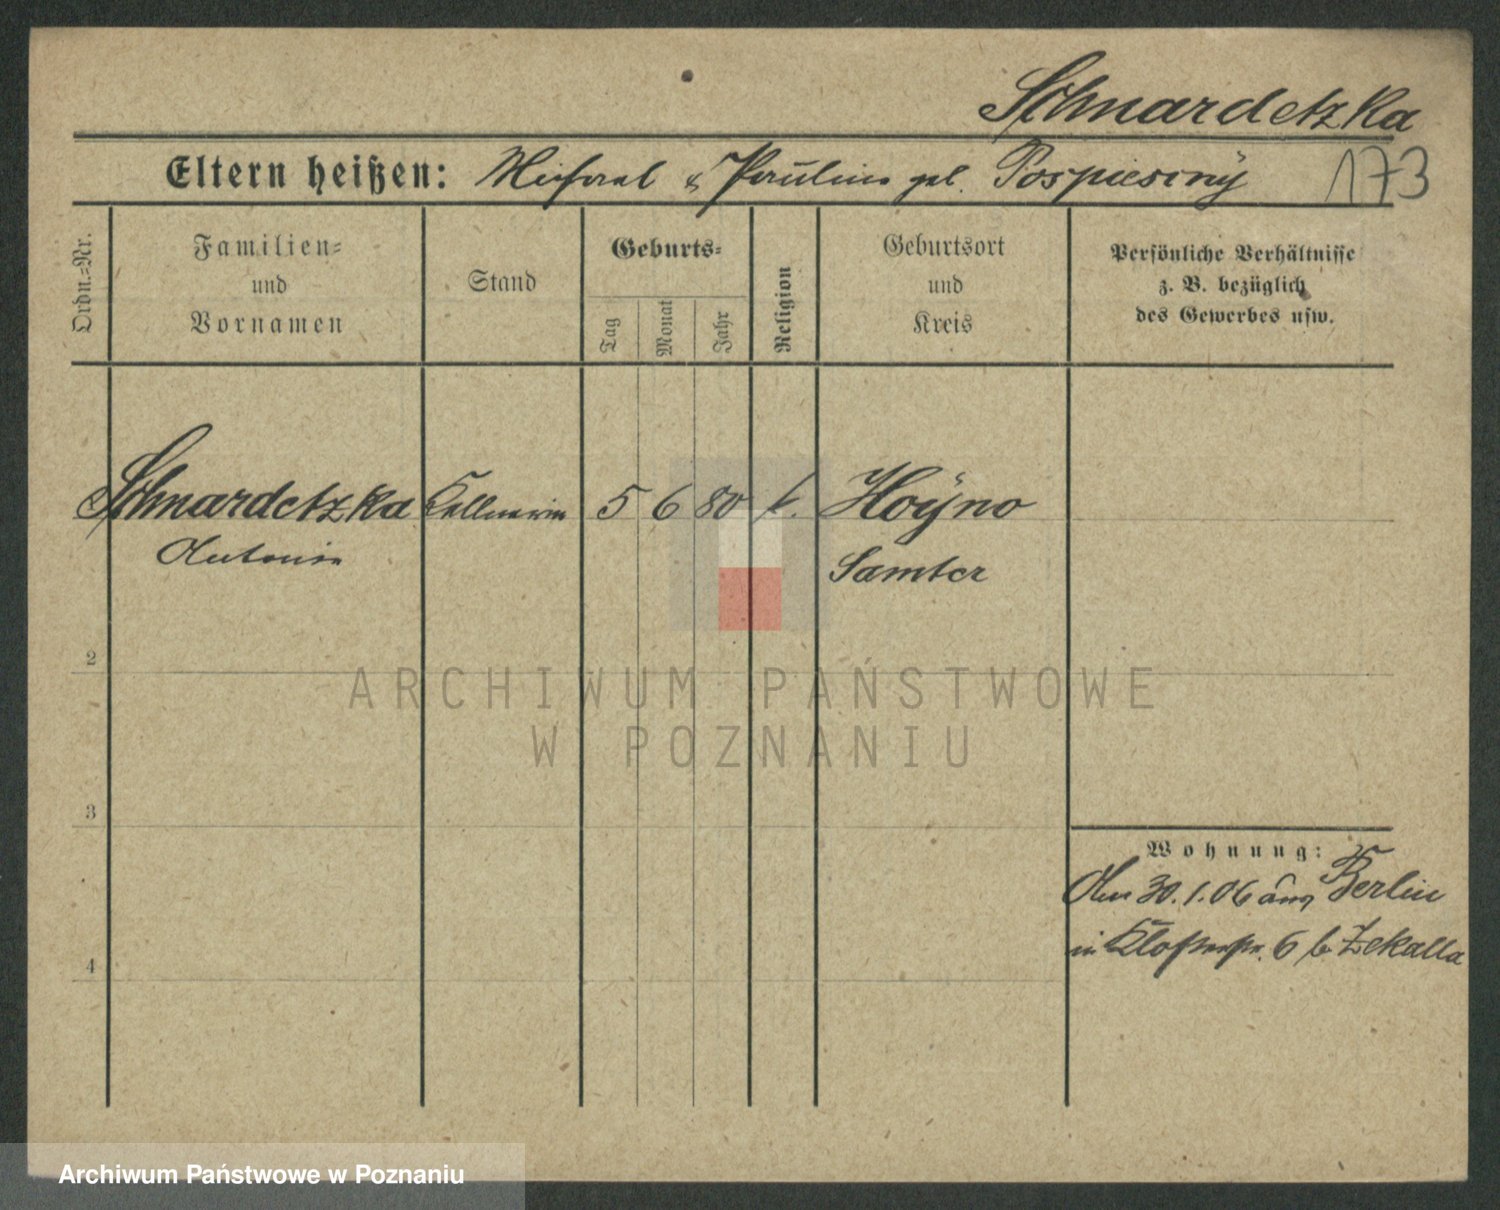 Schnardetzka
Eltern heißen: Michael & Pauline geb. Pospiesiny
173
Ordn.=Nr.
Familien=
und
Vornamen
Stand
Geburts=
Tag
Monat
Jahr
Religion
Geburtsort
und
Kreis
Persönliche Verhältnisse
z. B. bezüglich
des Gewerbes usw.
Schnardetzka Kellnerin 5 6 80 k. Hoÿno
Antonie Samter
2
ARCHIWUM PAŃSTWOWE
W POZNANIU
3
Wohnung:
Am 30.1.06 aus Berlin
in Klosterstr. 6 b. Zekalla
4
Archiwum Państwowe w Poznaniu